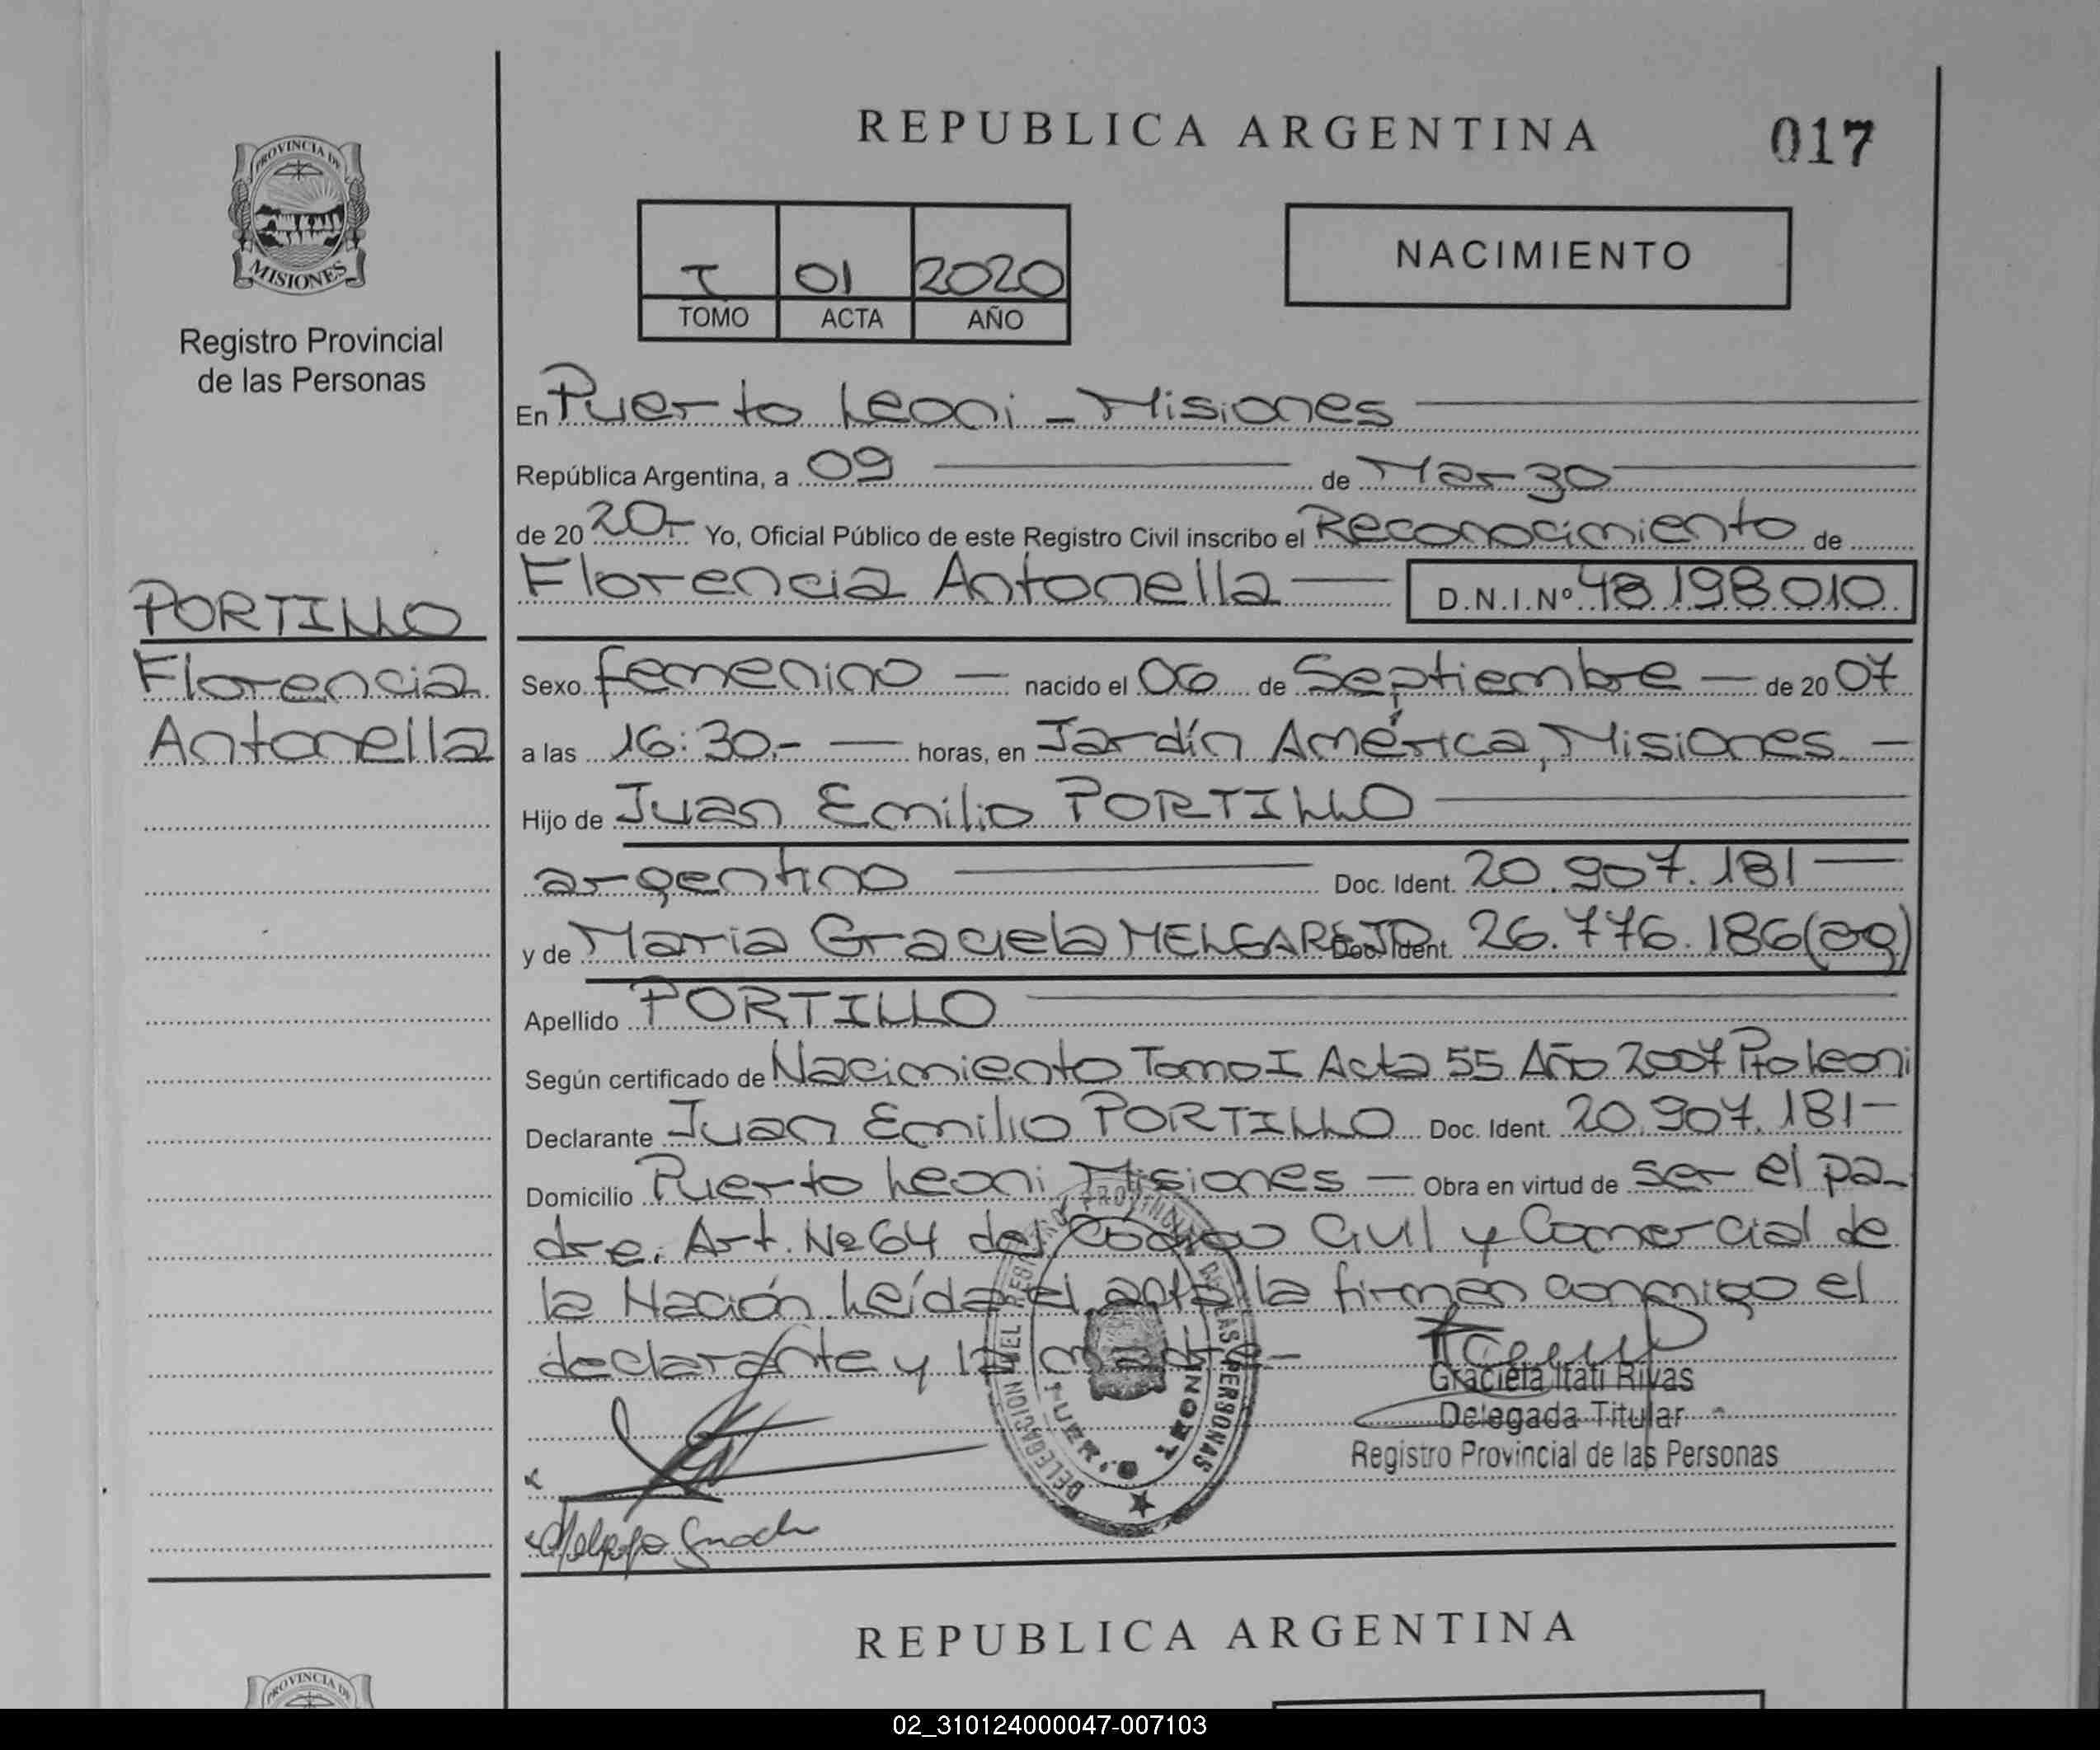 REPUBLICA ARGENTINA
017
PROVINCIA DE
MISIONES
Registro Provincial
de las Personas
I 01 2020
TOMO ACTA AÑO
NACIMIENTO
En Puerto Leoni - Misiones
República Argentina, a 09 de Marzo
de 20 20.- Yo, Oficial Público de este Registro Civil inscribo el Reconocimiento de
Florencia Antonella D.N.I.Nº 48198010
PORTILLO
Florencia
Antonella
Sexo femenino nacido el 06 de Septiembre de 20 07
a las 16:30.- horas, en Jardín América, Misiones
Hijo de Juan Emilio PORTILLO
argentino Doc. Ident. 20.907.181
y de Maria Graciela MELGAREJO Doc. Ident. 26.776.186 (arg)
Apellido PORTILLO
Según certificado de Nacimiento Tomo I Acta 55 Año 2007 Pto Leoni
Declarante Juan Emilio PORTILLO Doc. Ident. 20.907.181-
Domicilio Puerto Leoni Misiones Obra en virtud de ser el pa-
dre. Art. Nº 64 del Código Civil y Comercial de
la Nación. Leída el acta la firman conmigo el
declarante y la madre-
Graciela Itati Rivas
Delegada Titular
Registro Provincial de las Personas
REGISTRO PROVINCIAL DE LAS PERSONAS
DELEGACION NIVEL
PUERTO LEONI
REPUBLICA ARGENTINA
PROVINCIA DE
02_310124000047-007103